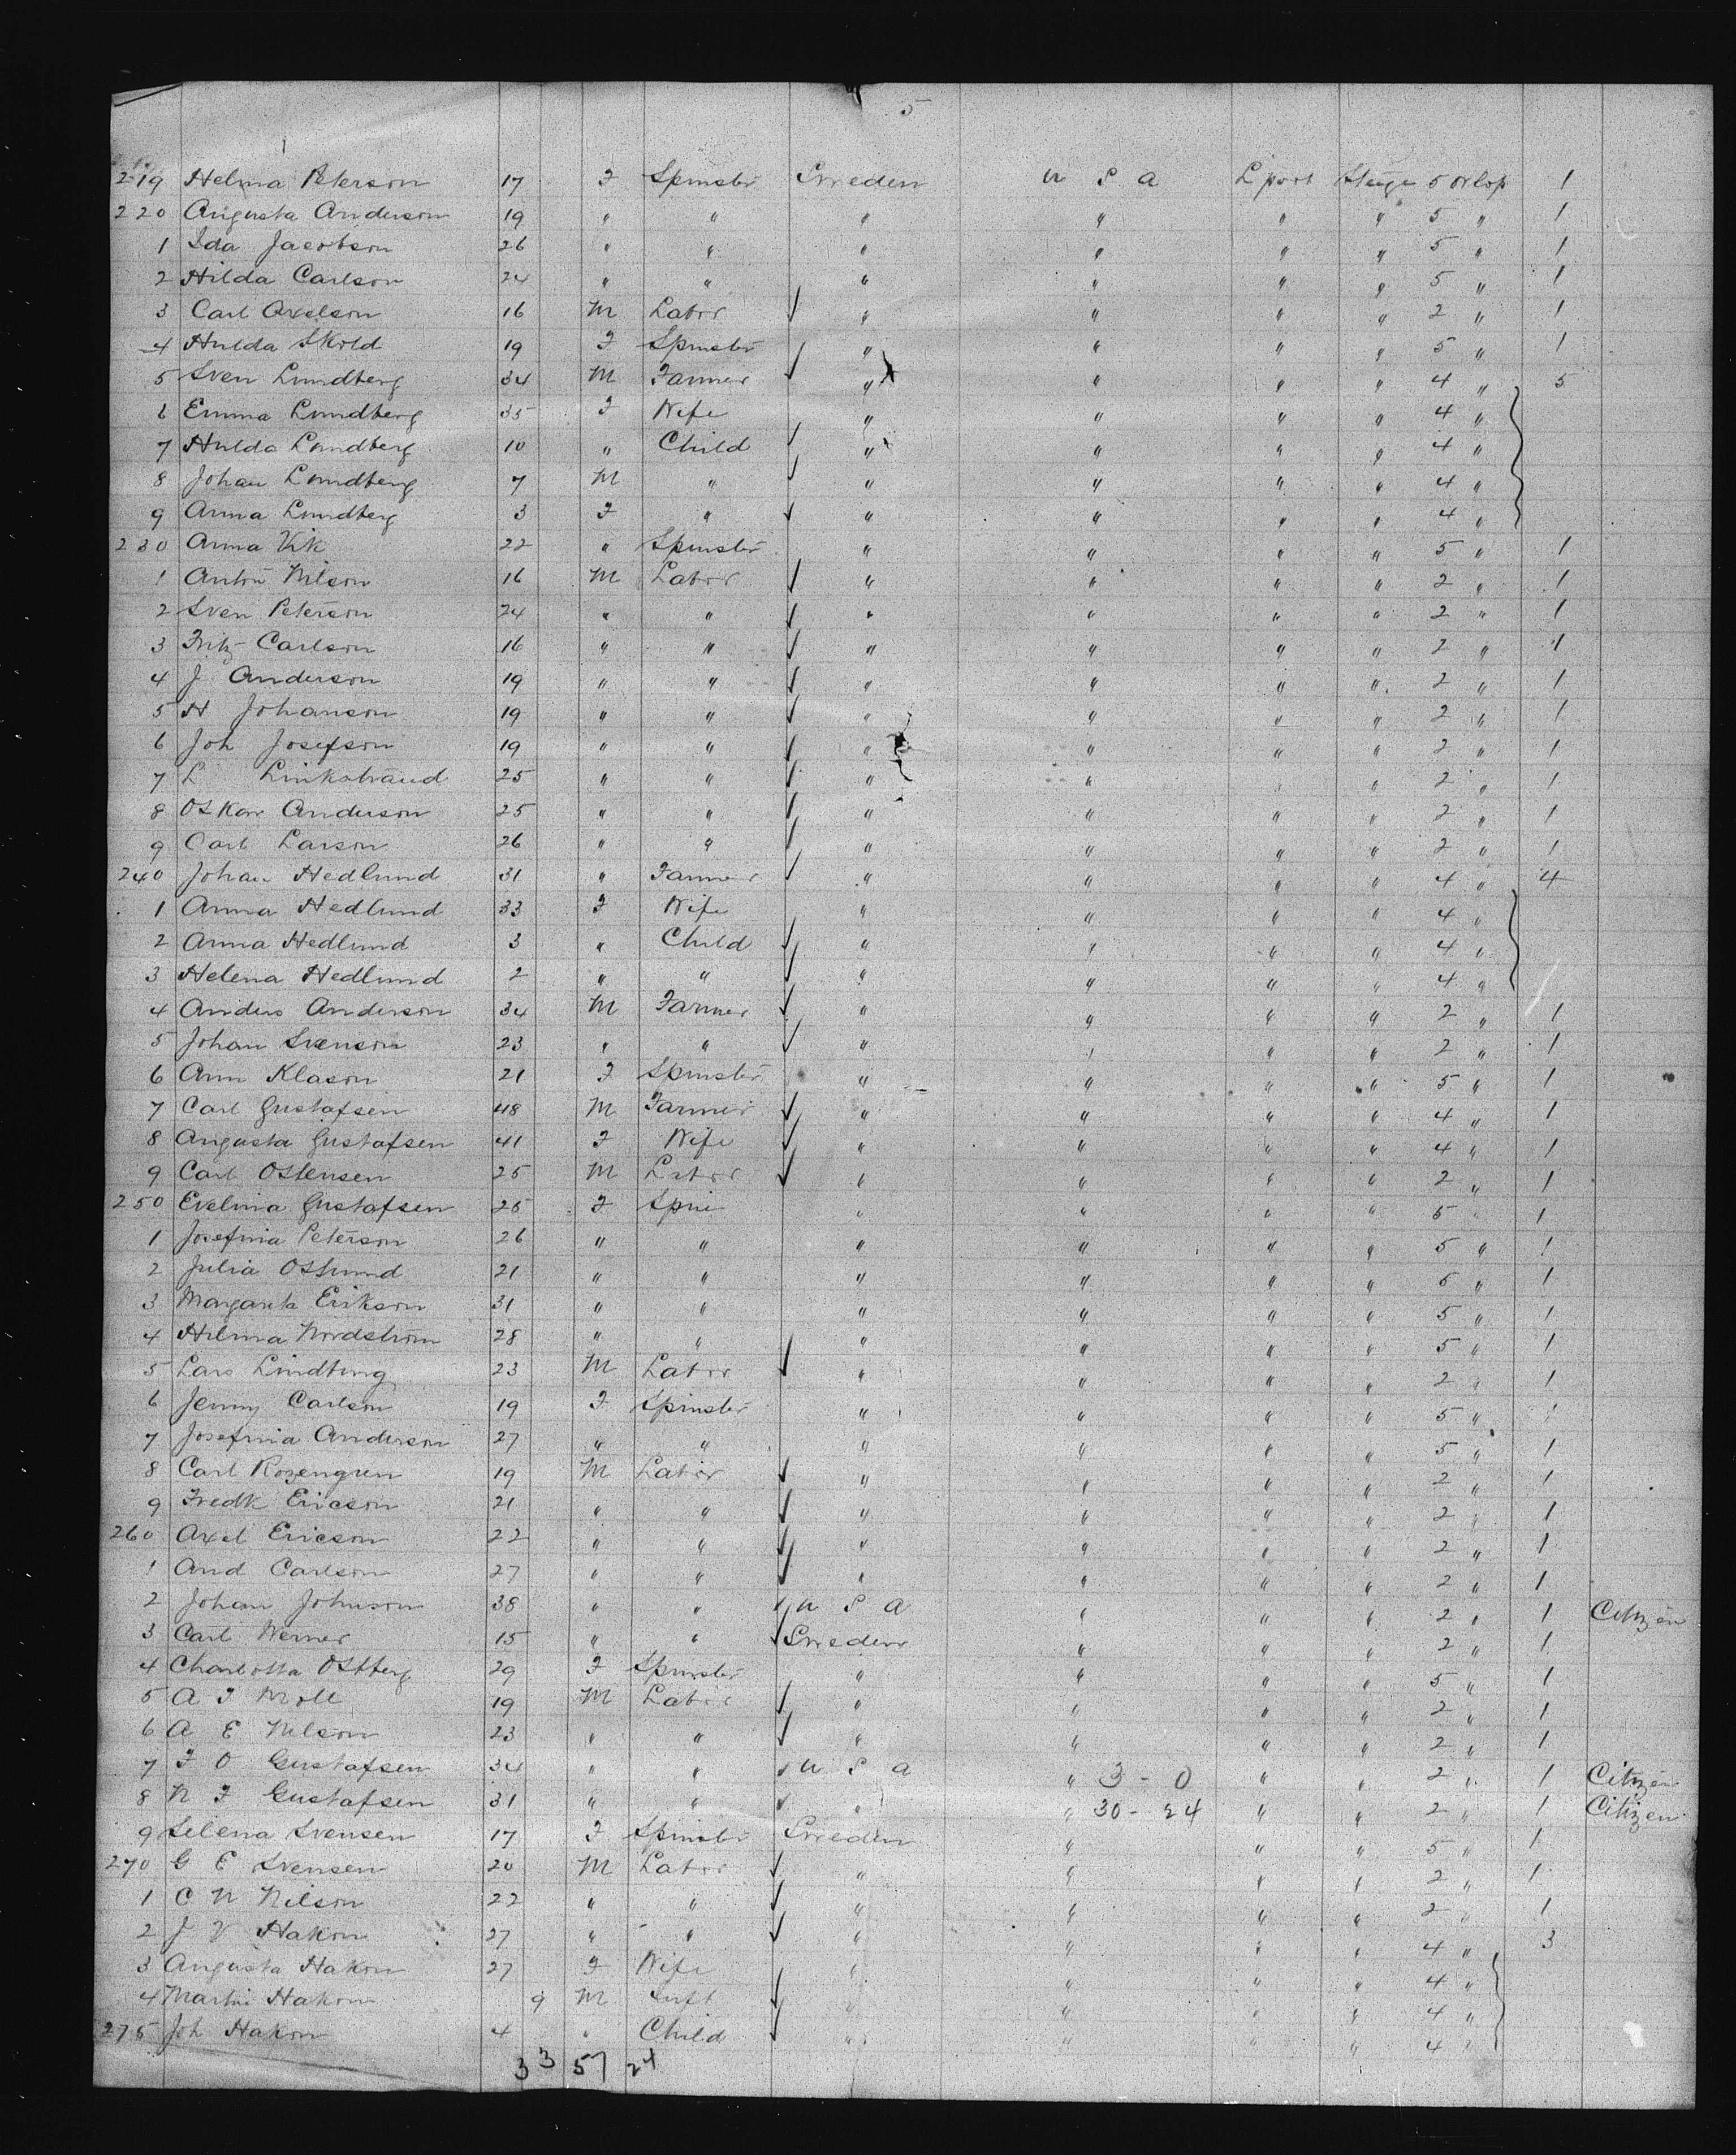 5
219 Helma Peterson 17 F Spinster Sweden U S A L port Steige 5 orlop 1
220 Augusta Anderson 19 " " " " " " 5 " 1
1 Ida Jacobson 26 " " " " " " 5 " 1
2 Hilda Carlson 24 " " " " " " 5 " 1
3 Carl Axelson 16 M Labor ✓ " " " " 2 " 1
4 Hulda Skold 19 F Spinster " " " " 5 " 1
5 Sven Lundberg 34 M Farmer ✓ " " " " 4 " 5
6 Emma Lundberg 35 F Wife " " " " 4 "
7 Hulda Lundberg 10 " Child ✓ " " " " 4 "
8 Johan Lundberg 7 M " ✓ " " " " 4 "
9 Anna Lundberg 3 F " ✓ " " " " 4 "
230 Anna Vik 22 " Spinster " " " " 5 " 1
1 Anton Nilson 16 M Labor ✓ " " " " 2 " 1
2 Sven Peterson 24 " " ✓ " " " " 2 " 1
3 Fritz Carlson 16 " " ✓ " " " " 2 " 1
4 J Anderson 19 " " ✓ " " " " 2 " 1
5 H Johanson 19 " " ✓ " " " " 2 " 1
6 Joh Josefson 19 " " ✓ " " " " 2 " 1
7 L Linkstrand 25 " " ✓ " " " " 2 " 1
8 Oskar Anderson 25 " " ✓ " " " " 2 " 1
9 Carl Larson 26 " " ✓ " " " " 2 " 1
240 Johan Hedlund 31 " Farmer ✓ " " " " 4 " 4
1 Anna Hedlund 33 F Wife " " " " 4 "
2 Anna Hedlund 3 " Child ✓ " " " " 4 "
3 Helena Hedlund 2 " " ✓ " " " " 4 "
4 Anders Anderson 34 M Farmer ✓ " " " " 2 " 1
5 Johan Svenson 23 " " ✓ " " " " 2 " 1
6 Ann Klason 21 F Spinster " " " " 5 " 1
7 Carl Gustafsen 48 M Farmer ✓ " " " " 4 " 1
8 Augusta Gustafsen 41 F Wife ✓ " " " " 4 " 1
9 Carl Ostensen 25 M Labor ✓ " " " " 2 " 1
250 Evelina Gustafsen 25 F Spin " " " " 5 " 1
1 Josefina Peterson 26 " " " " " " 5 " 1
2 Julia Ostlund 21 " " " " " " 5 " 1
3 Margareta Erikson 31 " " " " " " 5 " 1
4 Hilma Nordstrom 28 " " " " " " 5 " 1
5 Lars Lindberg 23 M Labor ✓ " " " " 2 " 1
6 Jenny Carlson 19 F Spinster " " " " 5 " 1
7 Josefina Anderson 27 " " " " " " 5 " 1
8 Carl Rozengren 19 M Labor ✓ " " " " 2 " 1
9 Fredk Ericson 21 " " ✓ " " " " 2 " 1
260 Axel Ericson 22 " " ✓ " " " " 2 " 1
1 And Carlson 27 " " ✓ " " " " 2 " 1
2 Johan Johnson 38 " " ✓ U S A " " " 2 " 1 Citizen
3 Carl Werner 15 " " ✓ Sweden " " " 2 " 1
4 Charlotta Ostberg 29 F Spinster " " " " 5 " 1
5 A F Moll 19 M Labor ✓ " " " " 2 " 1
6 A E Nilson 23 " " ✓ " " " " 2 " 1
7 F O Gustafsen 34 " " ✓ U S A " 3 - 0 " " 2 " 1 Citizen
8 N F Gustafsen 31 " " ✓ " " 30 - 24 " " 2 " 1 Citizen
9 Selena Svensen 17 F Spinster Sweden " " " 5 " 1
270 G E Svensen 20 M Labor ✓ " " " " 2 " 1
1 C N Nilson 22 " " ✓ " " " " 2 " 1
2 J V Hakon 27 " " ✓ " " " " 4 " 3
3 Augusta Hakon 27 F Wife " " " " 4 "
4 Martin Hakon 9 M Inft ✓ " " " " 4 "
275 Joh Hakon 4 " Child ✓ " " " " 4 "
33 57 24